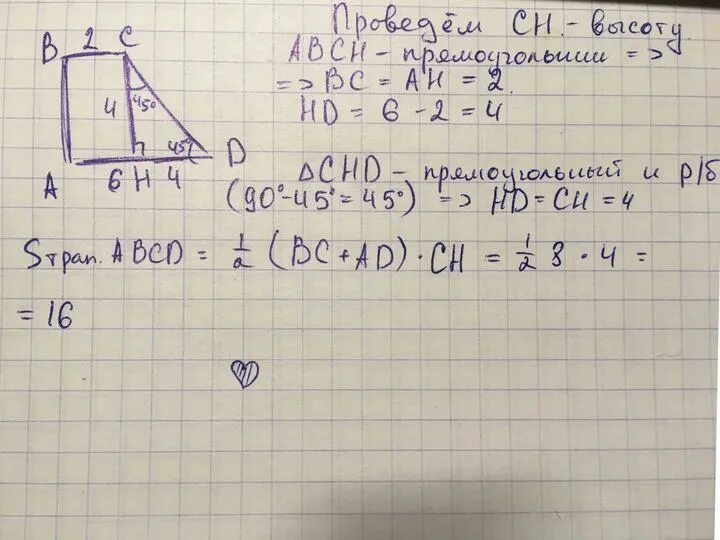 Проведём CH - высоту.
ABCH - прямоугольник =>
=> BC = AH = 2.
HD = 6 - 2 = 4
B 2 C
4 45°
45°
D
A 6 H 4
△CHD - прямоугольный и р/б
(90° - 45° = 45°) => HD = CH = 4
Sтрап. ABCD = 1/2 (BC + AD) · CH = 1/2 8 · 4 =
= 16